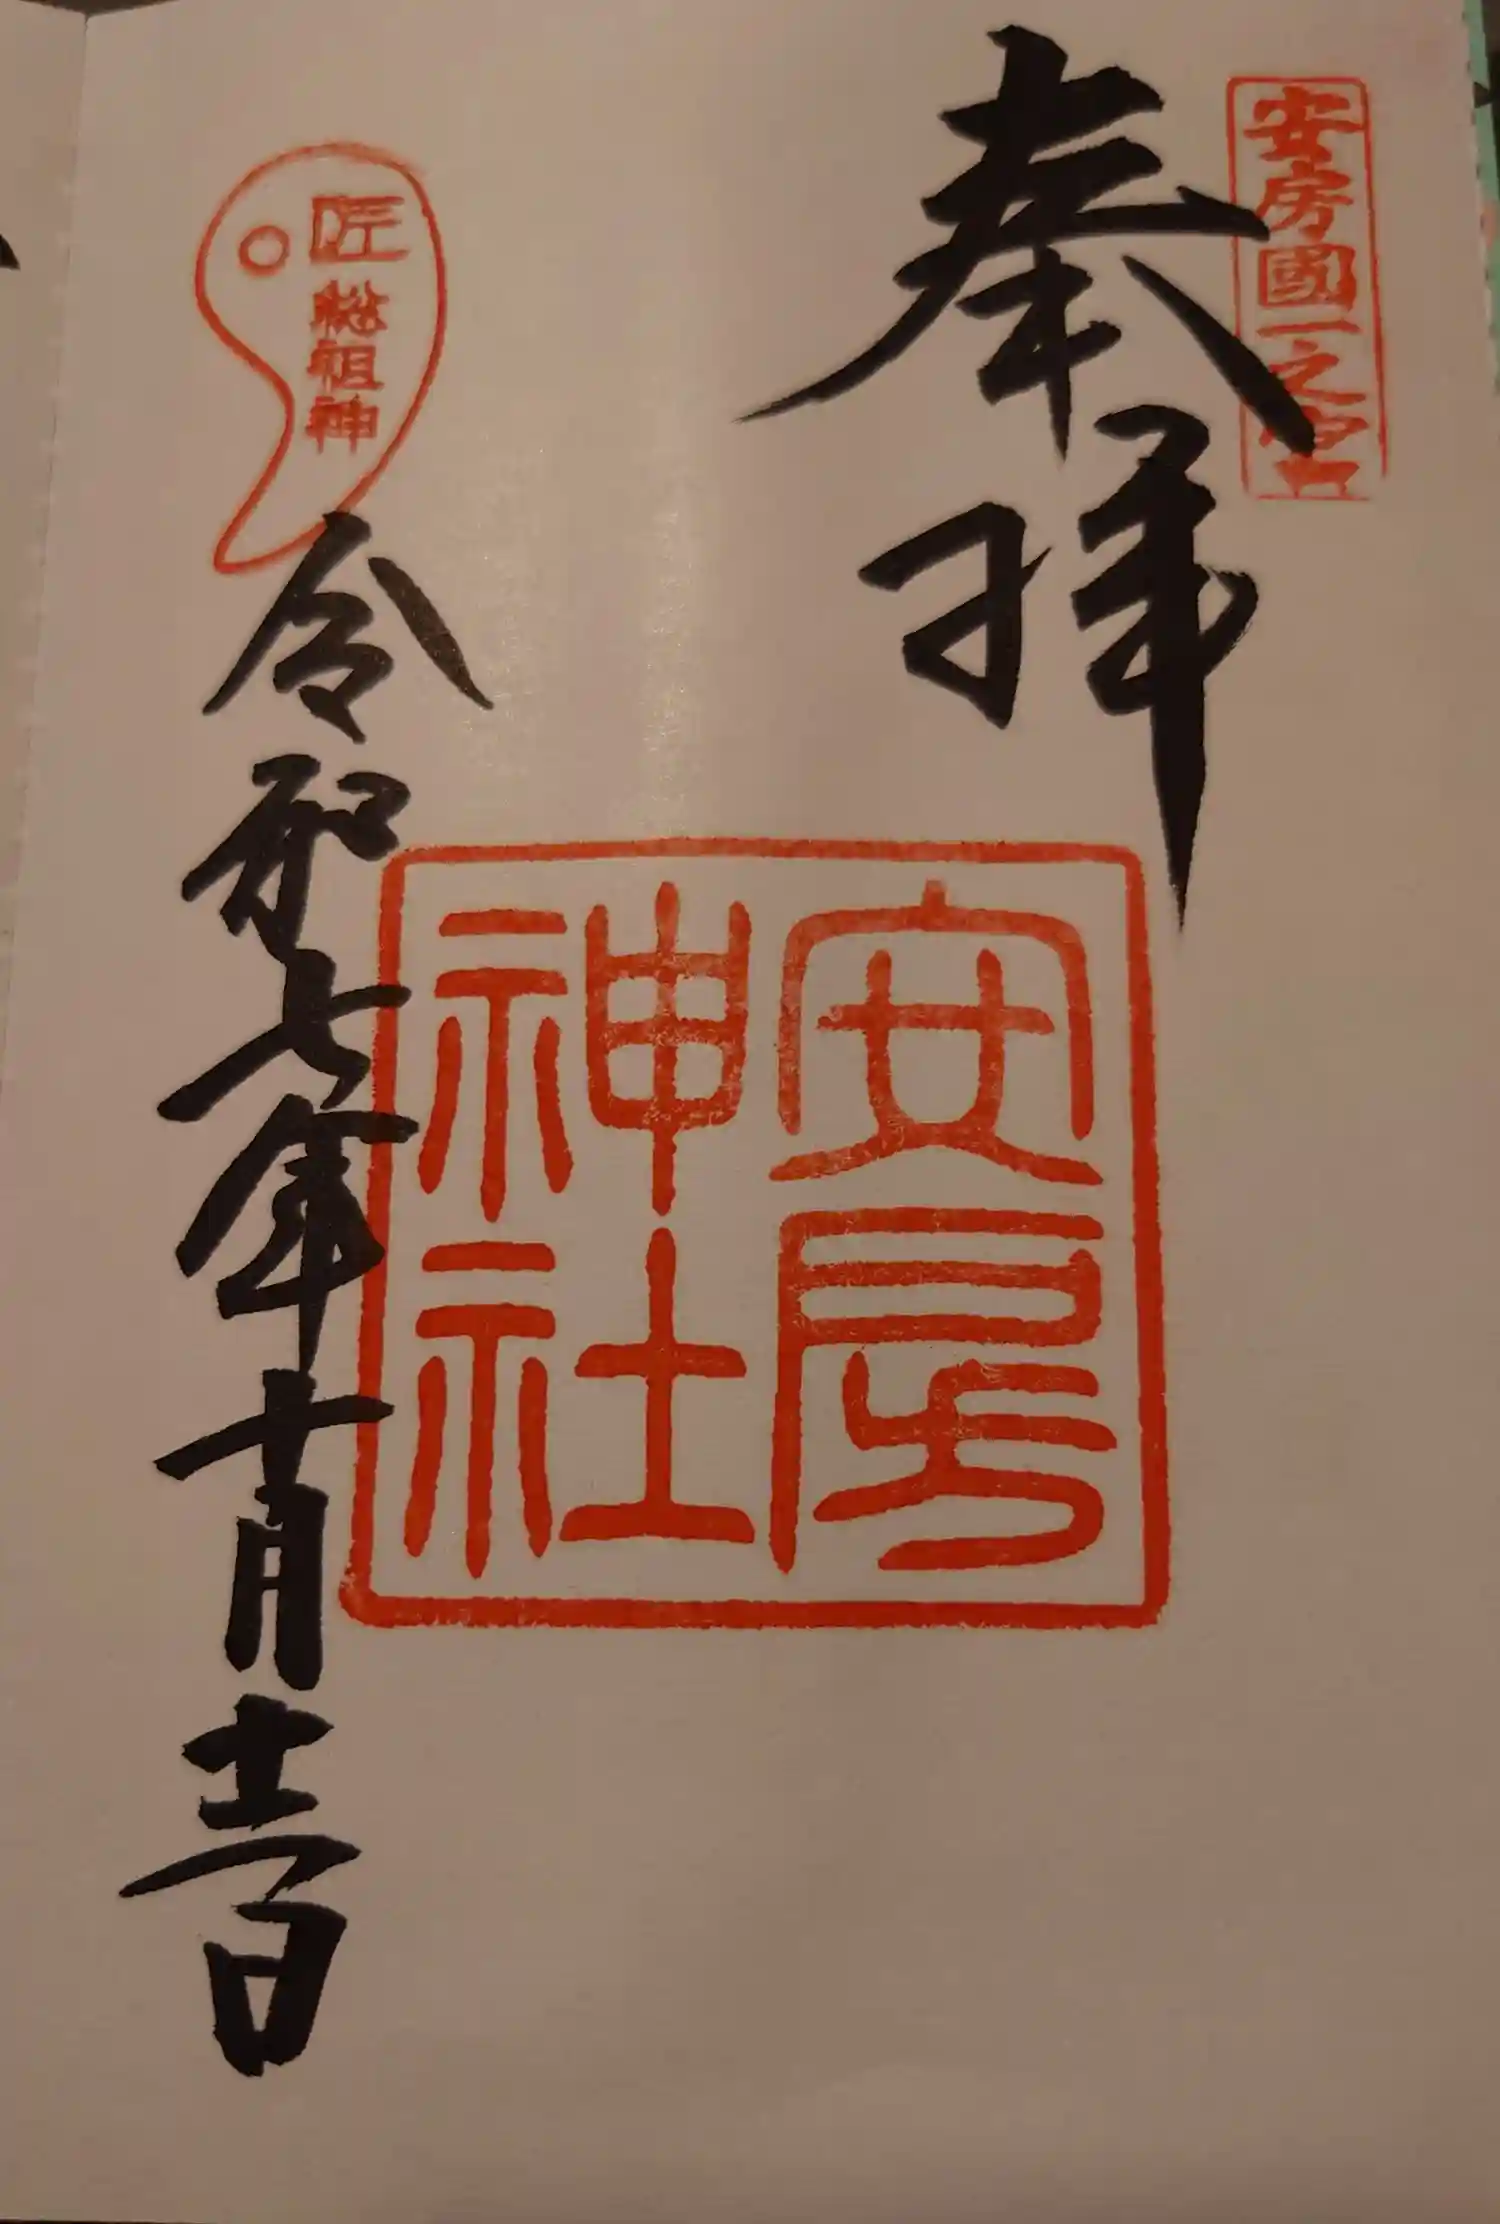 安房國一之宮
奉拝
安房
神社
匠 総祖神
令和七年十月十二日